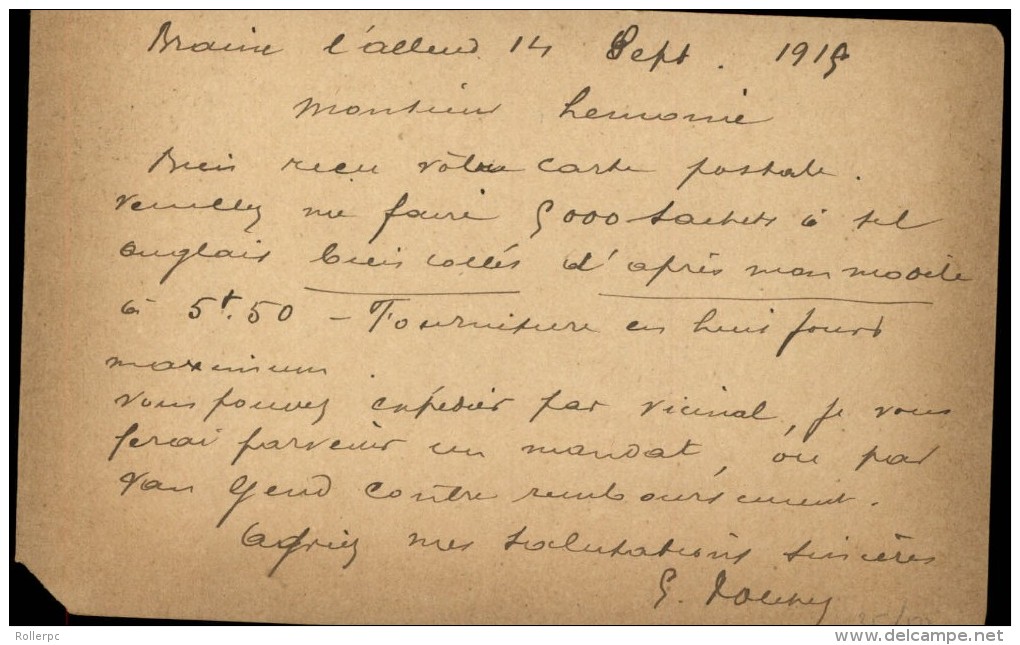 Braine l'alleud 14 Sept. 1915
Monsieur Lemoine
Bien reçu vôtre carte postale.
Veuillez me faire 5000 sachets à sel
anglais bien collés d'après mon modèle
à 5f.50 - Fourniture en huit jours
maximum.
Vous pouvez expédier par vicinal, je vous
ferai parvenir un mandat, ou par
Van Gend contre remboursement.
Agréez mes salutations sincères
G.
Rollerpc
www.delcampe.net